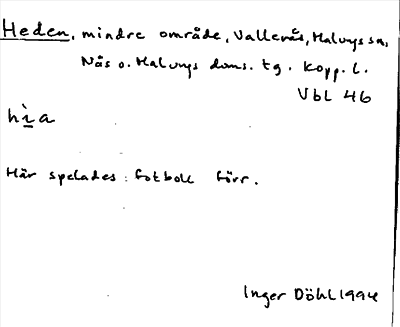 Heden, mindre område, Vallerås, Malungs sn,
Nås o. Malungs doms. tg. Kopp. l.
VbL 46
hìa
Här spelades fotboll förr.
Inger Döhl 1994